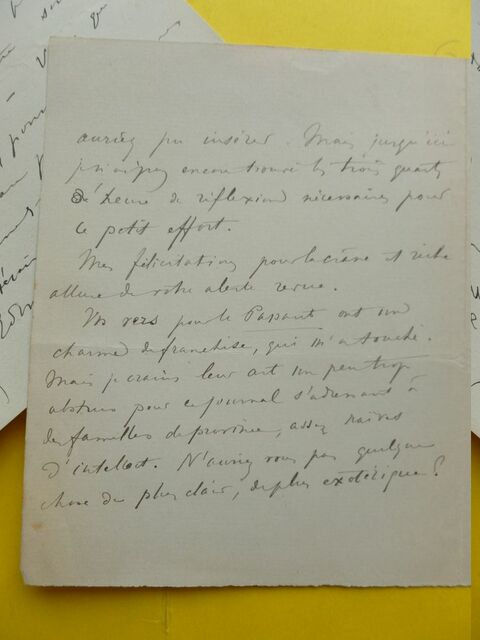 auriez pu insérer. Mais jusqu'ici
je n'ai pas encore trouvé les trois quarts
d'heure de réflexion nécessaires pour
ce petit effort.
Mes félicitations pour la crâne et riche
allure de votre alerte revue.
Vos vers pour le Passant ont un
charme de franchise, qui m'a touché.
Mais je crains leur art un peu trop
abstrus pour ce journal s'adressant à
des familles de province, assez naïves
d'intellect. N'auriez vous pas quelque
chose de plus clair, de plus exotérique?